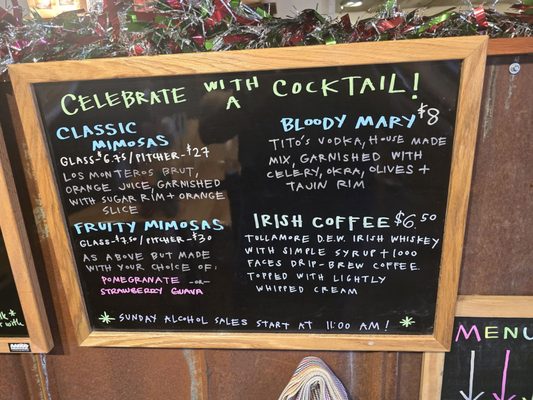 CELEBRATE WITH A COCKTAIL!
CLASSIC
MIMOSAS
GLASS-$6.75/PITCHER-$27
LOS MONTEROS BRUT,
ORANGE JUICE, GARNISHED
WITH SUGAR RIM + ORANGE
SLICE
FRUITY MIMOSAS
GLASS-$7.50/PITCHER-$30
AS ABOVE BUT MADE
WITH YOUR CHOICE OF,
POMEGRANATE -OR-
STRAWBERRY GUAVA
BLOODY MARY $8
TITO'S VODKA, HOUSE MADE
MIX, GARNISHED WITH
CELERY, OKRA, OLIVES +
TAJIN RIM
IRISH COFFEE $6.50
TULLAMORE D.E.W. IRISH WHISKEY
WITH SIMPLE SYRUP + 1000
FACES DRIP-BREW COFFEE.
TOPPED WITH LIGHTLY
WHIPPED CREAM
SUNDAY ALCOHOL SALES START AT 11:00 AM!
MENU